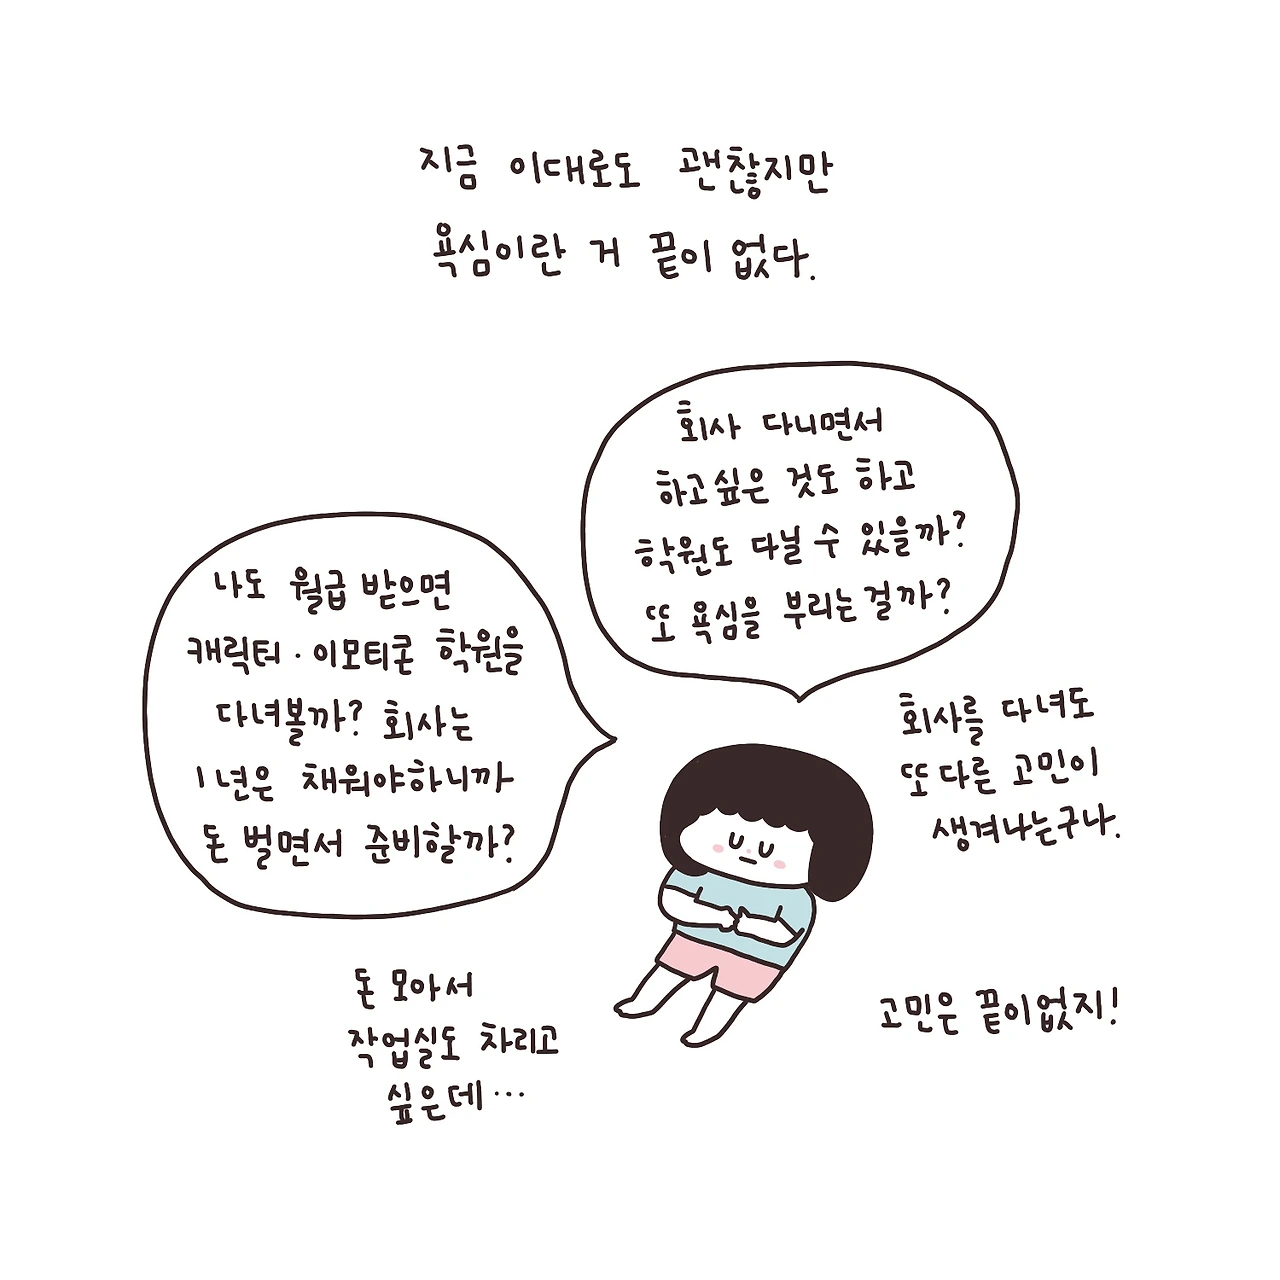 지금 이대로도 괜찮지만
욕심이란 거 끝이 없다.
회사 다니면서
하고싶은 것도 하고
학원도 다닐 수 있을까?
또 욕심을 부리는 걸까?
나도 월급 받으면
캐릭터·이모티콘 학원을
다녀볼까? 회사는
1년은 채워야하니까
돈 벌면서 준비할까?
회사를 다녀도
또 다른 고민이
생겨나는구나.
돈 모아서
작업실도 차리고
싶은데…
고민은 끝이없지!